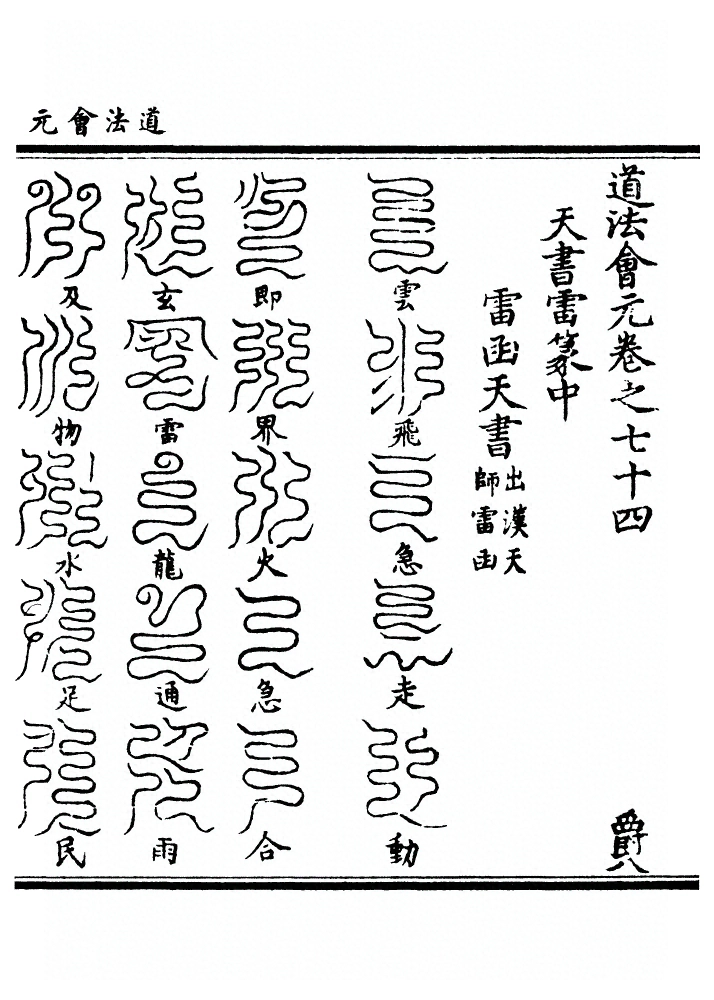 道法會元
道法會元卷之七十四
爵八
天書雷篆中
雷函天書
出漢天
師雷函
雲飛急走動
即界火急合
玄雷龍通雨
及物水足民